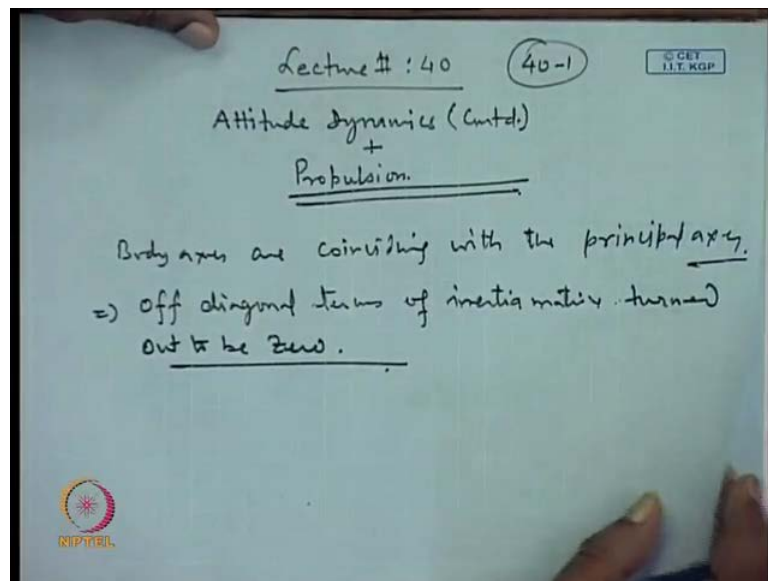 Lecture # : 40
40-1
© CET
I.I.T. KGP
Attitude Dynamics (Contd.)
+
Propulsion.
Body axes are coinciding with the principal axes.
=) Off diagonal terms of inertia matrix turned
out to be zero.
NPTEL